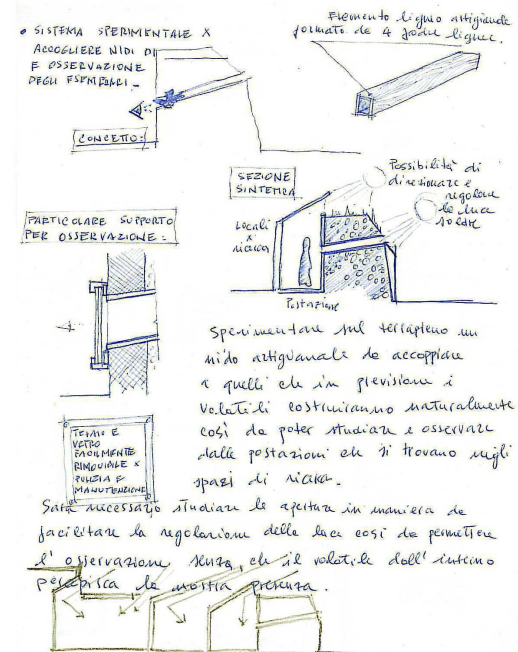 • SISTEMA SPERIMENTALE X
ACCOGLIERE NIDI DI
E OSSERVAZIONE
DEGLI ESEMPLARI.
CONCETTO:
Elemento ligneo artigianale
formato da 4 fodre lignee.
SEZIONE
SINTETICA
Possibilità di
direzionare e
regolare
la luce
solare
Locali
x
ricerca
Postazione
PARTICOLARE SUPPORTO
PER OSSERVAZIONE:
TELAIO E
VETRO
FACILMENTE
RIMOVIBILE X
PULIZIA E
MANUTENZIONE
Sperimentare sul terrapieno un
nido artigianale da accoppiare
a quelli che in previsione i
volatili costruiranno naturalmente
così da poter studiare e osservare
dalle postazioni che si trovano negli
spazi di ricerca.
Sarà necessario studiare le aperture in maniera da
facilitare la regolazione della luce così da permettere
l'osservazione senza, che il volatile dall'interno
percepisca la nostra presenza.